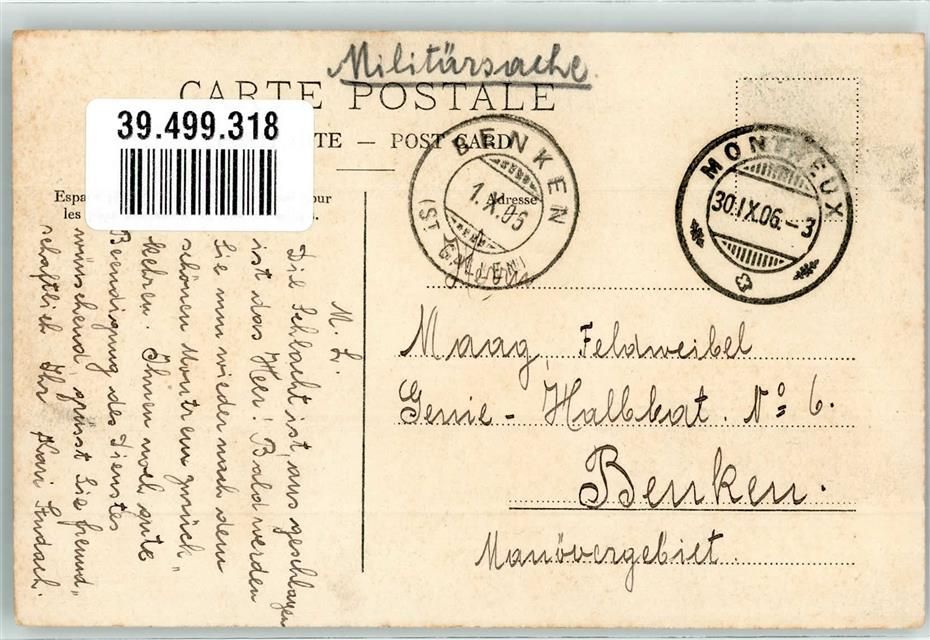 Militärsache.
CARTE POSTALE
39.499.318
TE — POST CARD
Espa
our
les
Adresse
BENKEN
1.X.06
(ST. GALLEN)
MONTREUX
30.IX.06.-3
Maag, Feldweibel
Genie-Halbbat. No 6.
Benken.
Manövergebiet.
M. L.
Die Schlacht ist, aus geschlagen
ist das Heer! Bald werden
Sie nun wieder nach dem
schönen Montreux zurück„
kehren. Ihnen noch gute
Beendigung des Dienstes
wünschend, grüsst Sie freund„
schaftlich Ihr Karl